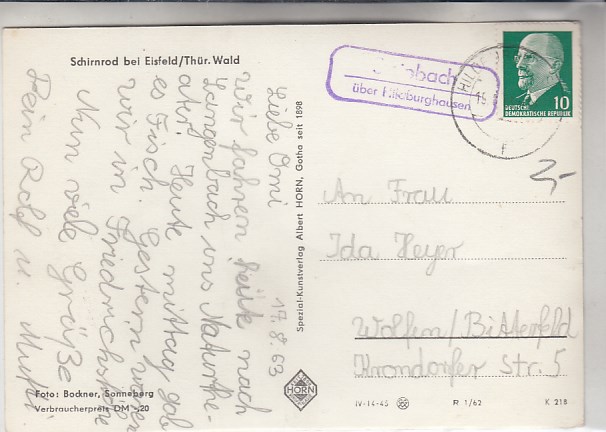 Schirnrod bei Eisfeld/Thür. Wald
17.8.63
Liebe Omi
Wir fahren heute nach
Langenbach uns Naturthe-
ater. Heute mittag gab
es Fisch. Gestern waren
wir in Friedrichshöhe
Nun viele Grüße
Dein Rolf u. Mutti.
Foto: Bockner, Sonneberg
Verbraucherpreis DM -,20
Spezial-Kunstverlag Albert HORN, Gotha seit 1898
HORN
über Hildburghausen
DEUTSCHE
DEMOKRATISCHE REPUBLIK
10
An Frau
Ida Heyer
Wolfen/Bitterfeld
Krondorfer Str. 5
IV-14-45
R 1/62
K 218